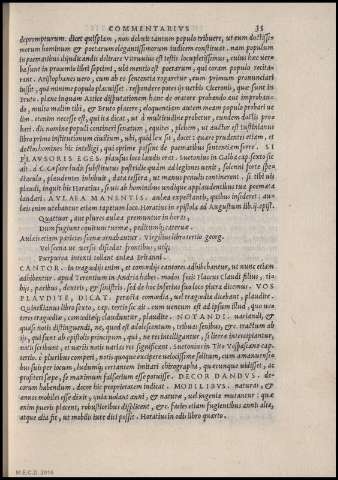 COMMENTARIVS 35
deprompturum. dicet quispiam, non debuit tantum populo tribuere, ut eum doctissi-
morum hominum & poetarum elegantissimorum iudicem constituat. nam populum
in poematibus diiudicandis deditum Vitruuius est testis locupletissimus, cuius haec ver-
ba sunt in prooemio libri septimi, ubi mentio est poetarum, qui coram populo recita-
rent. Aristophanes uero, cum ab eo sententia rogaretur, eum primum pronunciari
iussit, qui minime populo placuisset. respondere pateris uerbis Ciceronis, quae sunt in
Bruto. plane inquam Attice disputationem hanc de oratore probando aut improban-
do, multo malim tibi, & Bruto placere; eloquentiam autem meam populo probari ue-
lim. etenim necesse est, qui ita dicat, ut a multitudine probetur, eundem doctis proba-
ri. dic nomine populi contineri senatum, equites, plebem, ut auctor est Iustinianus
libro primo institutionum ciuilium, ubi, quid lex sit, docet: quare prudentes etiam, et
doctos homines hic intelligi, qui optime possent de poematibus sententiam ferre. SI
PLAVSORIS EGES. plausus loco laudis erat. Suetonius in Galba cap. sexto sic
ait. a C. Caesare Iudis substitutus postridie quam ad legiones uenit, solenni forte spe-
ctaculo, plaudentes inhibuit, data tessera, ut manus penulis continerent. si tibi uis
plaudi, inquit hic Horatius, seu ab hominibus undique applaudentibus tua poemata
laudari. AVLAEA MANENTIS. aulaea expectantis, quibus insideret: au-
laeis enim utebantur etiam tapetum loco. Horatius in epistola ad Augustum lib. ij. epist.
Quattuor, aut plures aulaea premuntur in horas,
Dum fugiunt equitum turmae, peditumq; cateruae.
Aulaeis etiam parietes scenae ornabantur. Virgilius libro tertio georg.
Vel scena ut uersis discedat frontibus, utq;
Purpurea intexti tollant aulaea Britanni.
CANTOR. in tragoedijs enim, et comoedijs cantores adhibebantur, ut nunc etiam
adhibentur. apud Terentium in Andria habes. modos fecit Flaccus Claudi filius, ti-
bijs, paribus, dextris, & sinistris. sed de hoc inferius suo loco plura dicemus. VOS
PLAVDITE, DICAT. peracta comoedia, uel tragoedia dicebant, plaudite.
Quintilianus libro sexto, cap. tertio sic ait. cum uentum est ad ipsum illud, quo ue-
teres tragoediae, comoediaeq; clauduntur, plaudite. NOTANDI. uariandi, &
quasi notis distinguendi, ne, quod est adolescentum, tribuas senibus, &c. tractum ab
ijs, quibus ab epistolis principum, qui, ne res intelligantur, si literae intercipiantur,
notis scribunt, et uarijs notis uarias res significant. Suetonius in Tito Vespasiano cap.
tertio. e pluribus comperi, notis quoque excipere uelocissime solitum, cum amanuensi-
bus suis per iocum, ludumq; certantem imitari chirographa, quaecunque uidisset, ac
profiteri saepe, se maximum falsarium esse potuisse. DECOR DANDVS. de-
corum habendum. decor hic proprietatem indicat. MOBILIBVS. naturas, &
annos mobiles esse dixit, quia uolant anni, & naturae, uel ingenia mutantur: quae
enim pueris placent, robustioribus displicent, &c. facies etiam fugientibus annis alia,
atque alia fit, ut mobilis iure dici posset. Horatius in odis libro quarto.
M.E.C.D. 2016